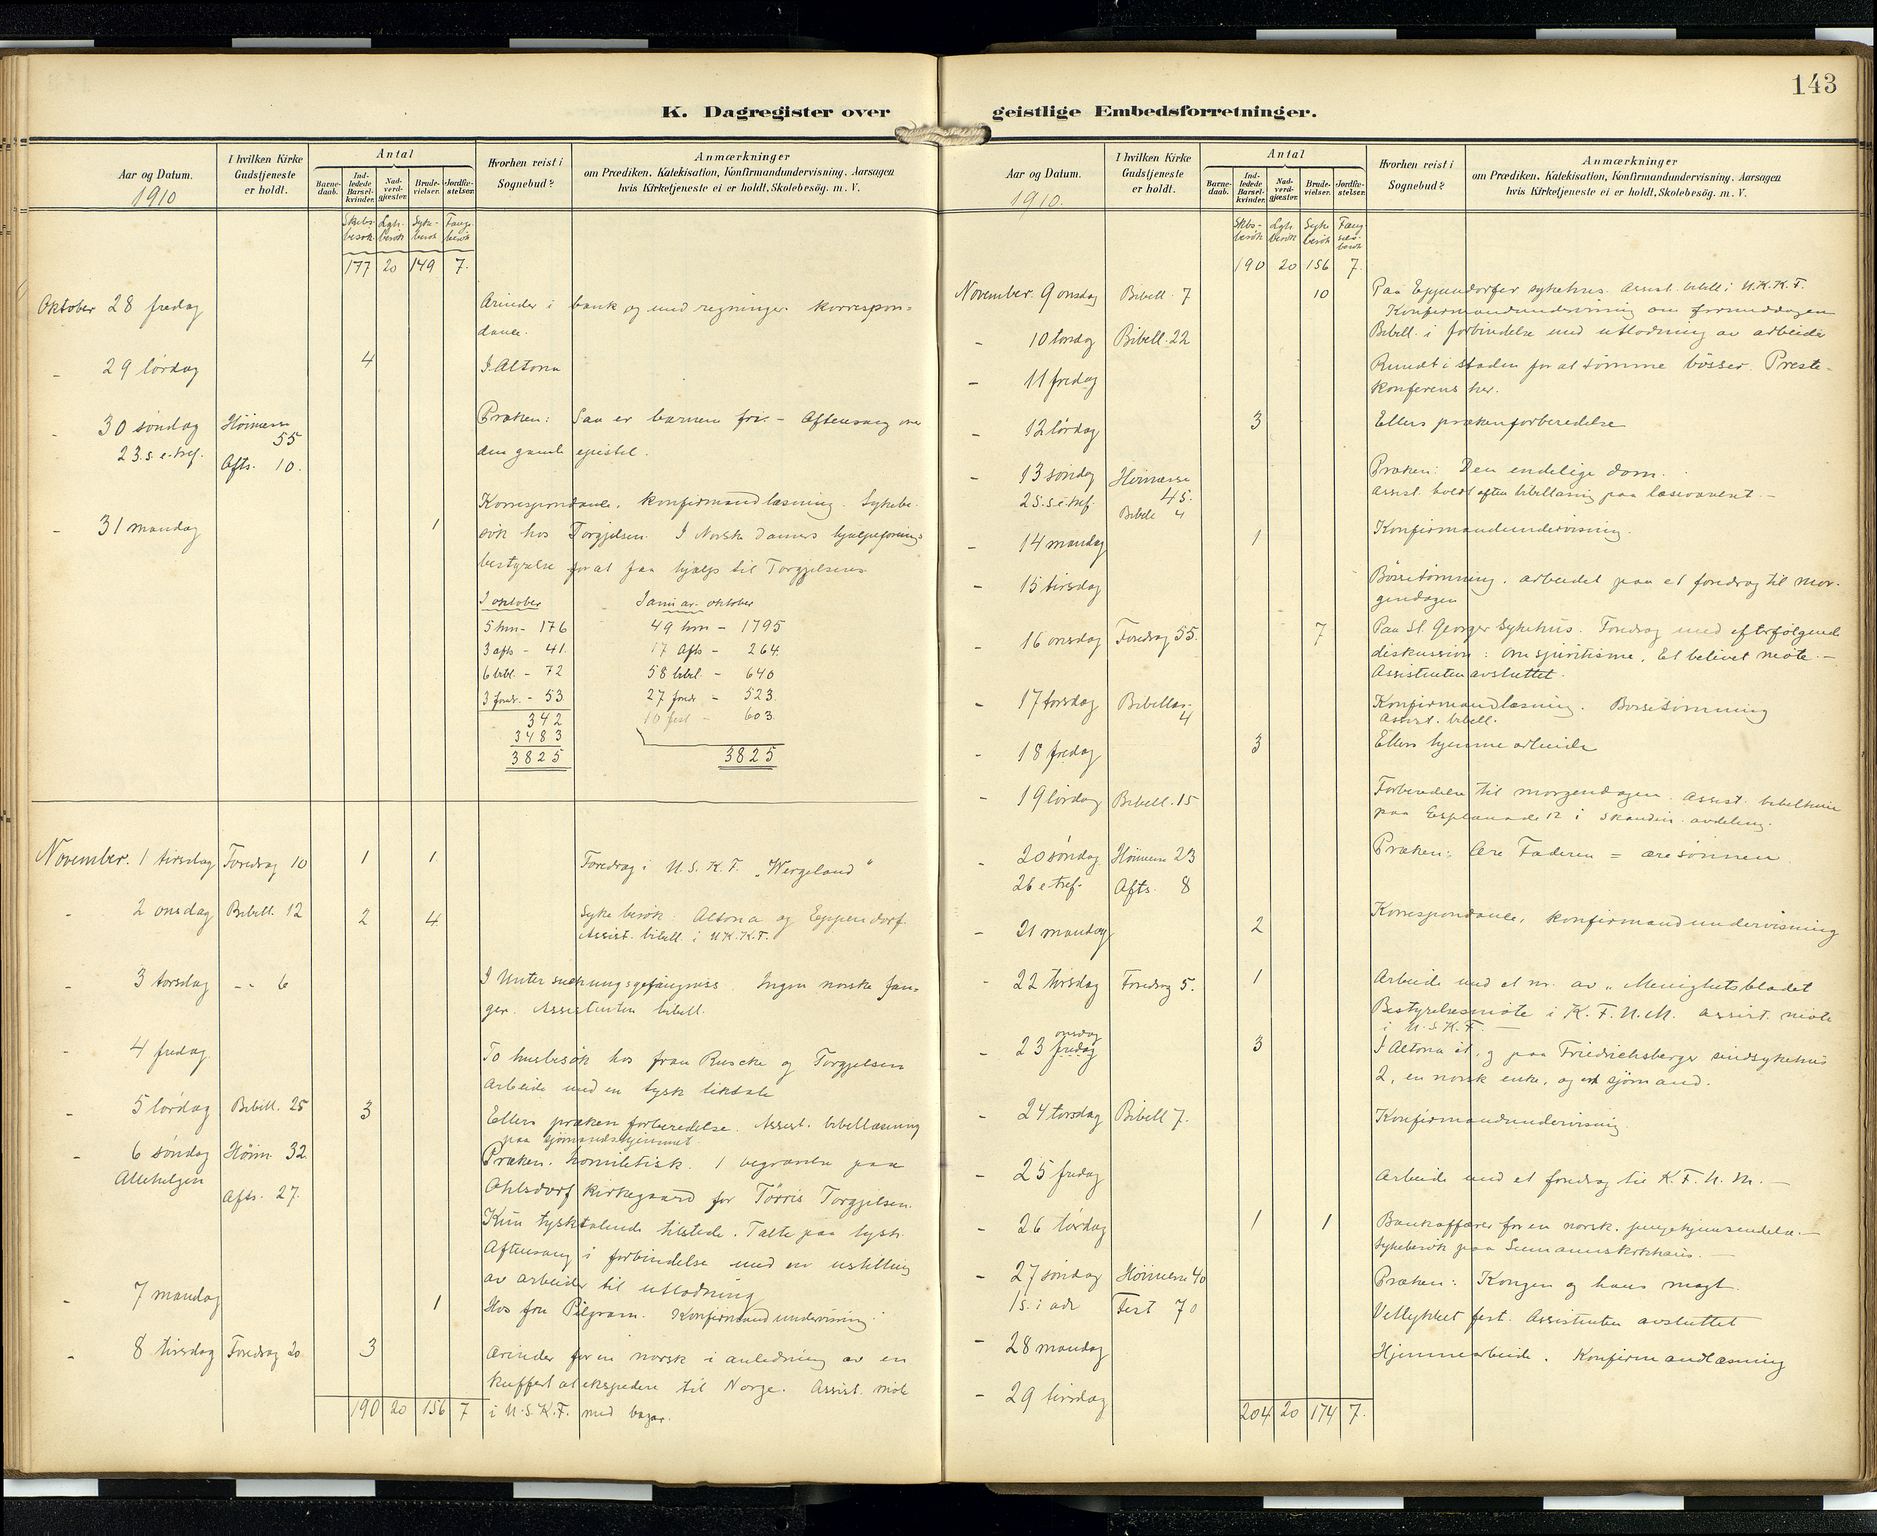 143
K. Dagregister over
Aar og Datum.
1910
I hvilken Kirke Gudstjeneste er holdt.
Antal
Barnedaab.
Indledede Barselkvinder.
Nadverdgjæster.
Brudevielser.
Jordfæstelser.
Hvorhen reist i Sognebud?
Anmærkninger
om Prædiken, Katekisation, Konfirmandundervisning, Aarsagen
hvis Kirketjeneste ei er holdt, Skolebesøg. m. V.
Skibsbesøk Lgh. besøk Sykebesøk Fængs. besøk
177 20 149 7.
Oktober 28 fredag Ærinder i bank og med regninger. Korrespondance.
- 29 lørdag 4 I Altona
- 30 søndag Høimesse 55 Præken: Saa er barnene fri. – Aftensang over
23. s. e. tref. Afts. 10. den gamle epistel.
Korrespondance. Konfirmandlæsning. Sykebe-
- 31 mandag 1 søk hos Torgjelsen. I Norske Damers hjælpeforenings
bestyrelse for at faa hjælp til Torgjelsens
I oktober Januar-oktober
5 hm - 176 49 hm - 1795
3 afts - 41. 17 Afts - 264.
6 bibl. - 72 58 bibel. - 640
3 foredr. - 53 27 foredr - 523.
342 10 fest - 603.
3483
3825 3825
November. 1 tirsdag Foredrag 10 1 1. Foredrag i U.S.K.F. „Wergeland"
- 2 onsdag Bibell. 12 2 4. Sykebesøk. Altona og Eppendorf.
Assist. bibell. i U.K.K.F.
- 3 torsdag -"- 6 I Untersuchungsgefängniss. Ingen norske fan-
ger. Assistenten bibell.
- 4 fredag. To husbesøk hos fran Ruscke og Torgjelsen
Arbeide med en tysk liktale
- 5 lørdag Bibell. 25 3 Ellers prækenforberedelse. Assist. bibellæsning
paa sjømandshjemmet.
- 6 søndag Høim 32. Præken. homiletisk. 1 begravelse paa
Allehelgen Afts. 27. Ohlsdorf kirkegaard for Tørris Torgjelsen.
Kun tysktalende tilstede. Talte paa tysk.
Aftensang i forbindelse med en ustilling
av arbeider til utlodning
- 7 mandag 1 Hos fru Pilgram. Konfirmandundervisning.
- 8 tirsdag Foredrag 20. 3 Ærinder for en norsk i anledning av en
kuffert at ekspedere til Norge. Assist. møte
190 20 156 7 i U.S.K.F. med bazar.
geistlige Embedsforretninger.
Aar og Datum.
1910.
I hvilken Kirke Gudstjeneste er holdt.
Antal
Barnedaab.
Indledede Barselkvinder.
Nadverdgjæster.
Brudevielser.
Jordfæstelser.
Hvorhen reist i Sognebud?
Anmærkninger
om Prædiken, Katekisation, Konfirmandundervisning, Aarsagen
hvis Kirketjeneste ei er holdt, Skolebesøg. m. V.
Skbsbesøk Lgh. besøk Syke besøk Fængselsbesøk
190 20 156 7.
November. 9 onsdag Bibell. 7 10 Paa Eppendorfer sykehus. Assist. bibell. i U.K.K.F.
Konfirmandundervisning om formiddagen
- 10 torsdag Bibell. 22 Bibell. i forbindelse med utlodning av arbeide
- 11 fredag Rundt i staden for at tømme bøsser. Preste-
konferens her.
- 12 lørdag 3 Ellers prækenforberedelse
- 13 søndag Høimesse 45. Præken: Den endelige dom.
25. s. e. tref. Bibell 4 Assist. holdt aften bibellæsning paa læseværelset. –
- 14 mandag 1 Konfirmandundervisning.
- 15 tirsdag Bøssetømning. Arbeidet paa et foredrag til mor-
gendagen
- 16 onsdag Foredrag 55. 7 Paa St. Georger Sykehus. Foredrag med efterfølgende
diskussion: Om spiritisme. Et belivet møte. –
Assistenten avsluttet.
- 17 torsdag Bibellæs. 4 Konfirmandlæsning. Bøssetømning
Assist. bibell.
- 18 fredag 3 Ellers hjemmearbeide
- 19 lørdag Bibell. 15 Forberedelse til morgendagen. Assist. bibeltime
paa Esplanade 12 i skandin. avdeling.
- 20 søndag Høimesse 23 Præken: Ære Faderen = ære sønnen.
26 e. tref. Afts. 8
- 21 mandag 2 Korrespondance, konfirmandundervisning
- 22 tirsdag Foredrag 5. 1 Arbeide med et nr. av „Menighetsbladet
Bestyrelsesmøte i K.F.U.M. Assist. møte
i U.S.K.F. –
- 23 fredag onsdag 3 I Altona 1, og paa Friedrichsberger sindsykehus
2, en norsk enke, og en sjømand.
- 24 torsdag Bibell 7. Konfirmandundervisning.
- 25 fredag Arbeide med et foredrag til K.F.U.M. –
- 26 lørdag 1 1 Bankaffærer for en norsk. pengehjemsendelse. –
Sykebesøk paa Seemannskrkhaus. –
- 27 søndag Høimesse 40 Præken: Kongen og hans magt.
1 s. i adv Fest 70 Vellykket fest. Assistenten avsluttet
- 28 mandag Hjemmearbeide. Konfirmandlæsning
- 29 tirsdag
204 20 174 7.